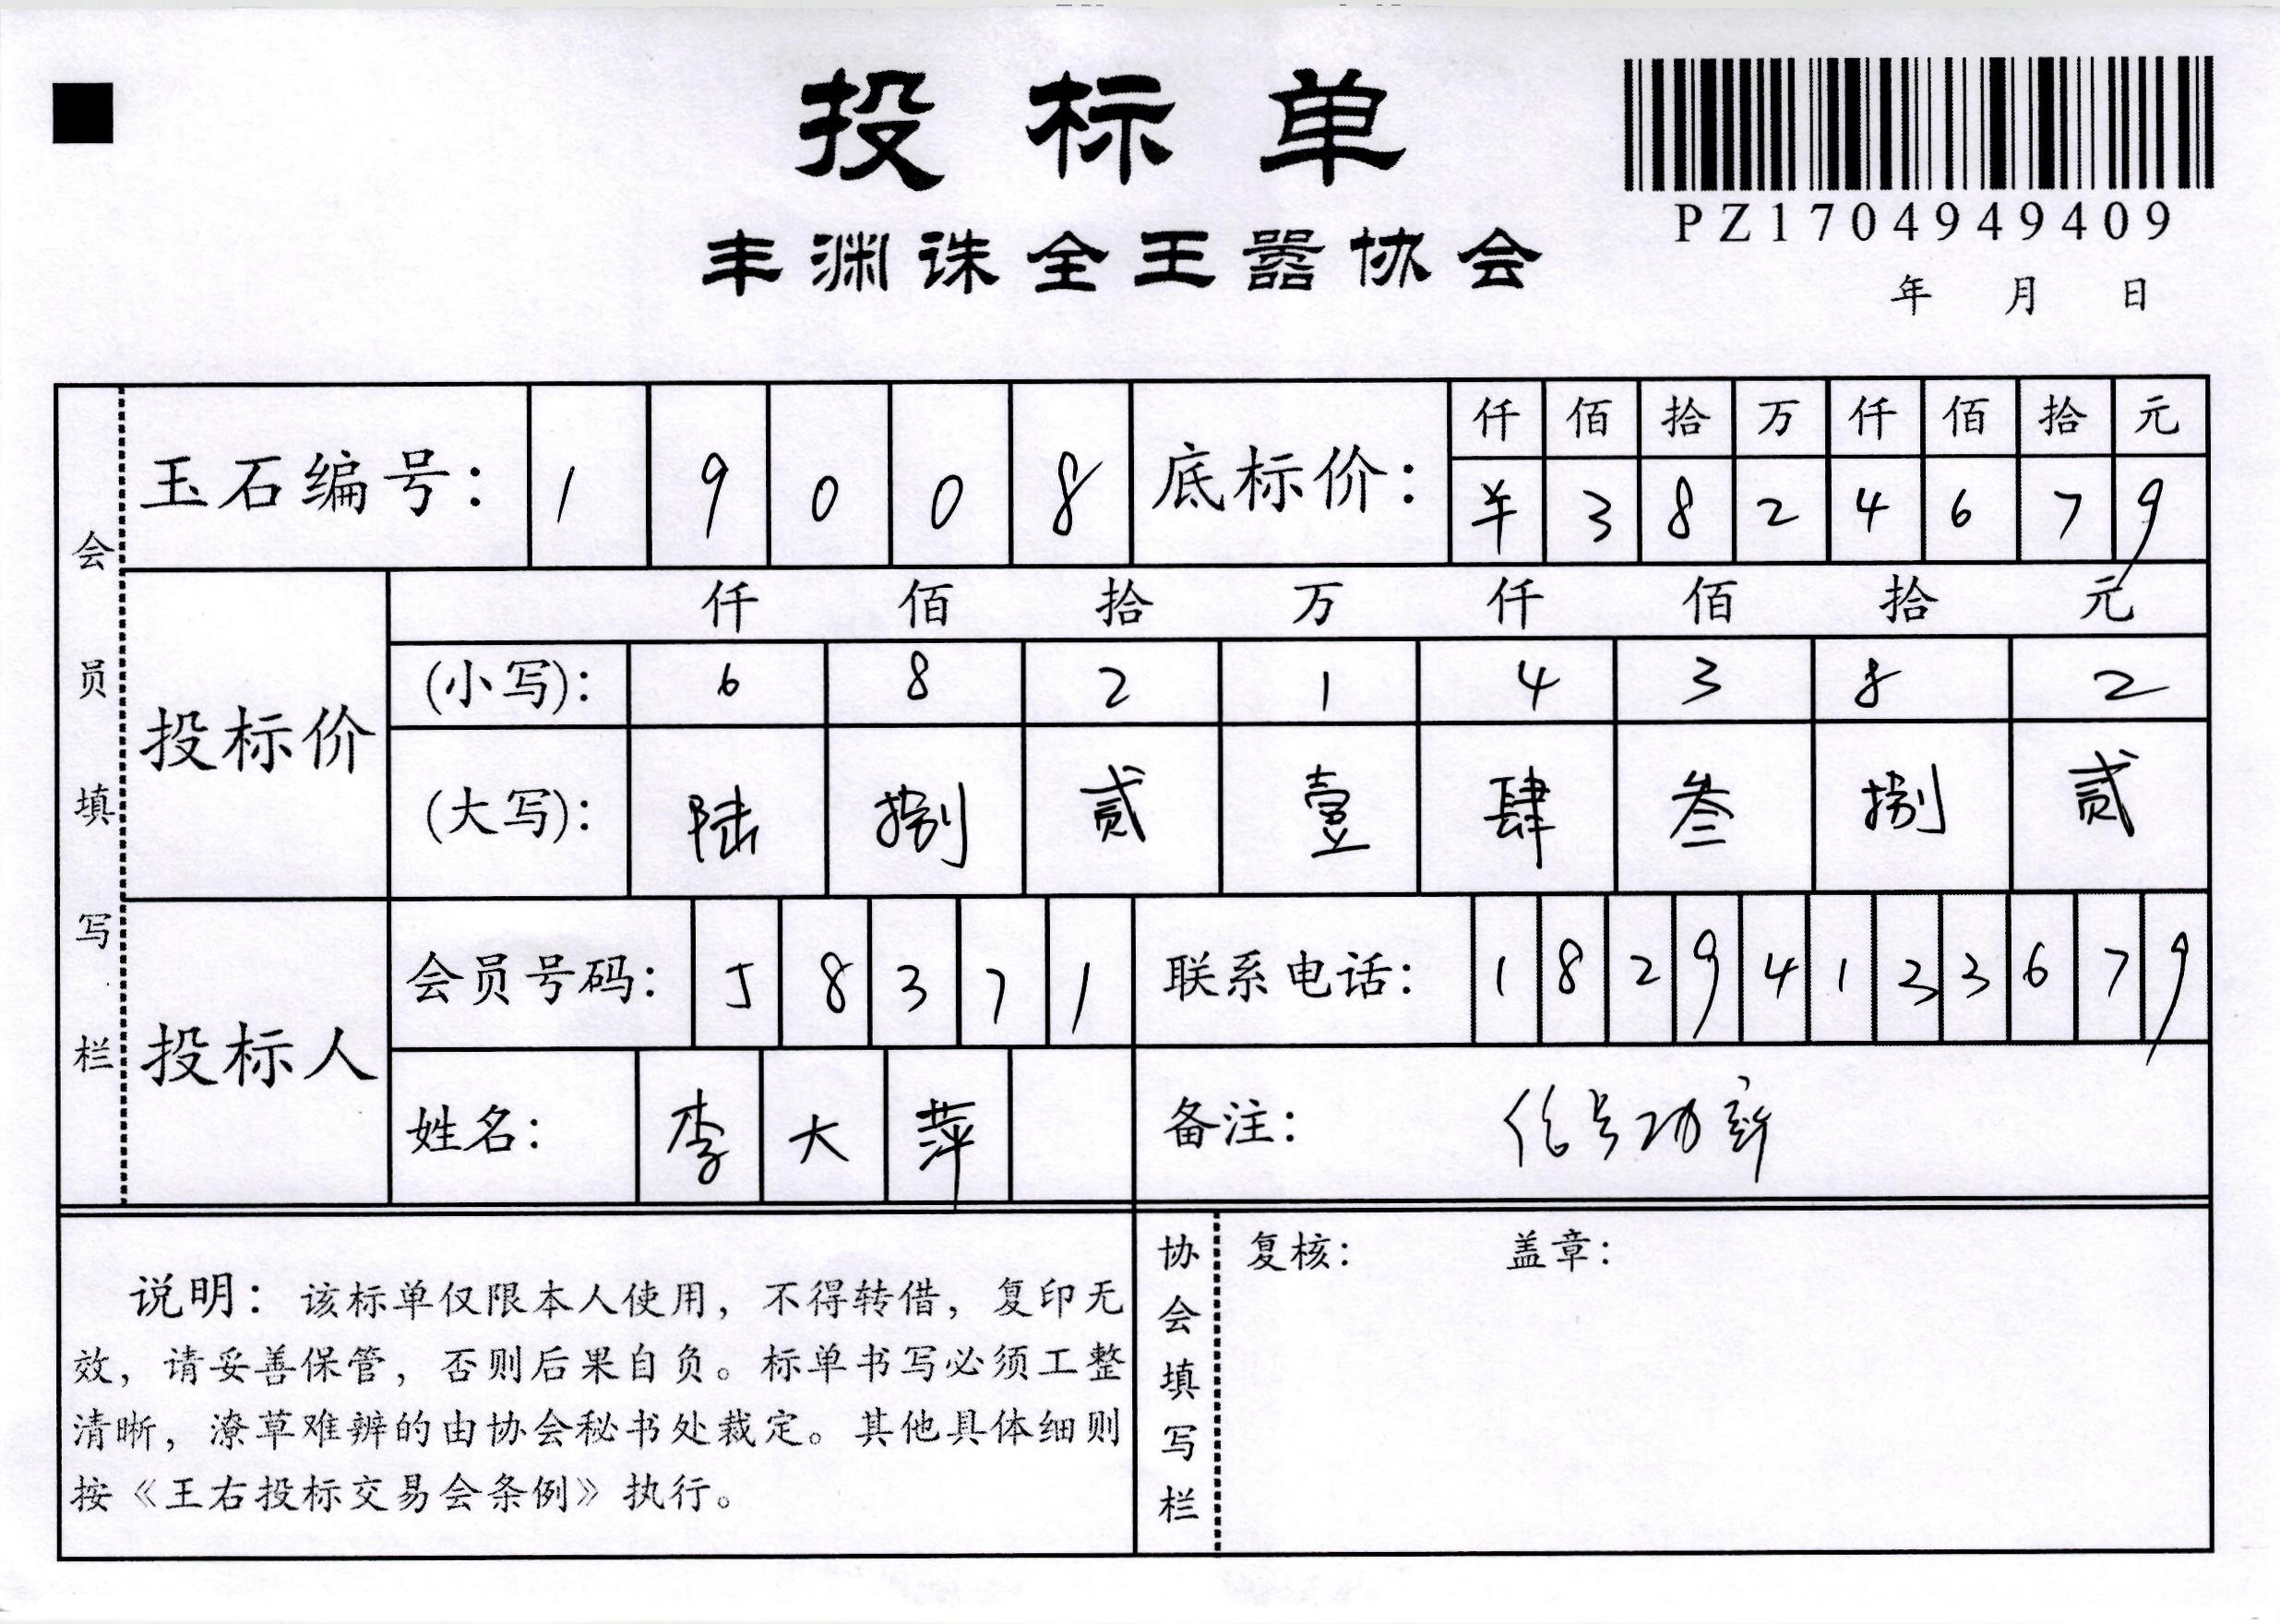 投标单
PZ1704949409
丰渊诛全王嚣协会
年 月 日
会员填写栏
玉石编号: 1 9 0 0 8 底标价: 仟 佰 拾 万 仟 佰 拾 元
¥ 3 8 2 4 6 7 9
投标价 仟 佰 拾 万 仟 佰 拾 元
(小写): 6 8 2 1 4 3 8 2
(大写): 陆 捌 贰 壹 肆 叁 捌 贰
投标人 会员号码: J 8 3 7 1 联系电话: 1 8 2 9 4 1 3 3 6 7 9
姓名: 李 大 萍 备注: 信号功率
说明: 该标单仅限本人使用, 不得转借, 复印无
效, 请妥善保管, 否则后果自负。标单书写必须工整
清晰, 潦草难辨的由协会秘书处裁定。其他具体细则
按《王右投标交易会条例》执行。
协会填写栏
复核: 盖章: